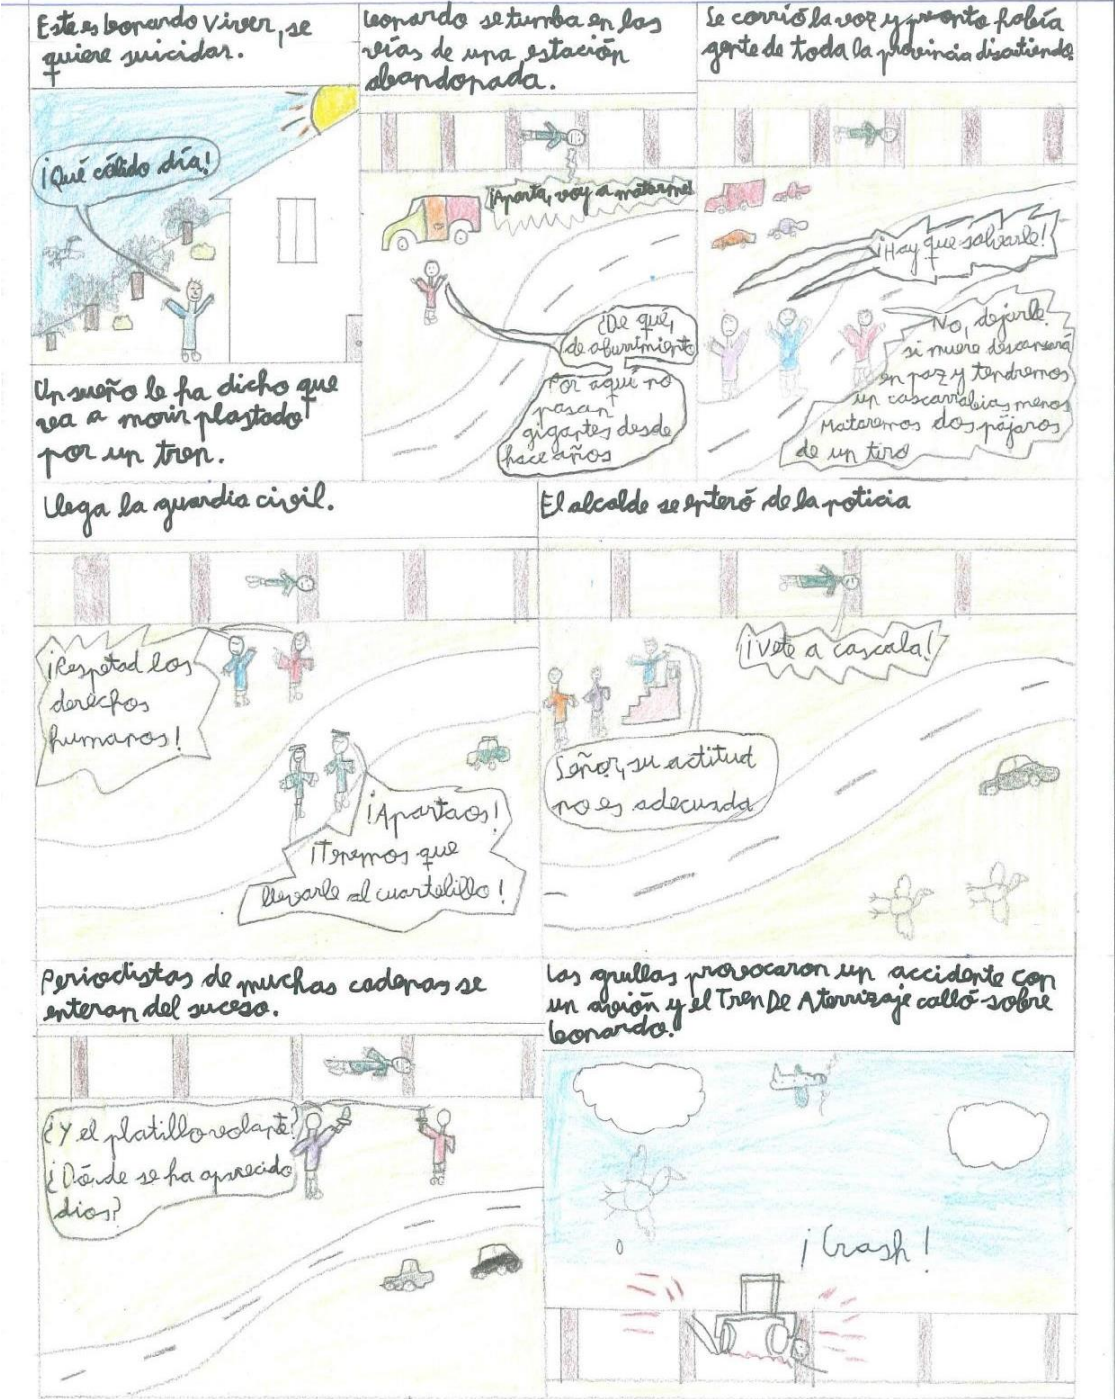 Este es Leonardo Viver, se
quiere suicidar.
¡Qué cálido día!
Un sueño le ha dicho que
va a morir plastado
por un tren.
Leonardo se tumba en las
vías de una estación
abandonada.
¡Aparta, voy a matarme!
¿De qué,
de aburrimiento
Por aquí no
pasan
gigantes desde
hace años
Se corrió la voz y pronto había
gente de toda la provincia discutiendo
¡Hay que salvarle!
No, dejarle!
si muere descansará
en paz y tendremos
un cascarrabias menos
Mataremos dos pájaros
de un tiro
Llega la guardia civil.
¡Respetad los
derechos
humanos!
¡Apartaos!
¡Tenemos que
llevarle al cuartelillo!
El alcalde se enteró de la noticia
¡Vete a cascala!
Señor, su actitud
no es adecuada
Periodistas de muchas cadenas se
enteran del suceso.
¿Y el platillo volante?
¿Dónde se ha aparecido
dios?
Las grullas provocaron un accidente con
un avión y el Tren De Aterrizaje calló sobre
Leonardo.
¡Crash!